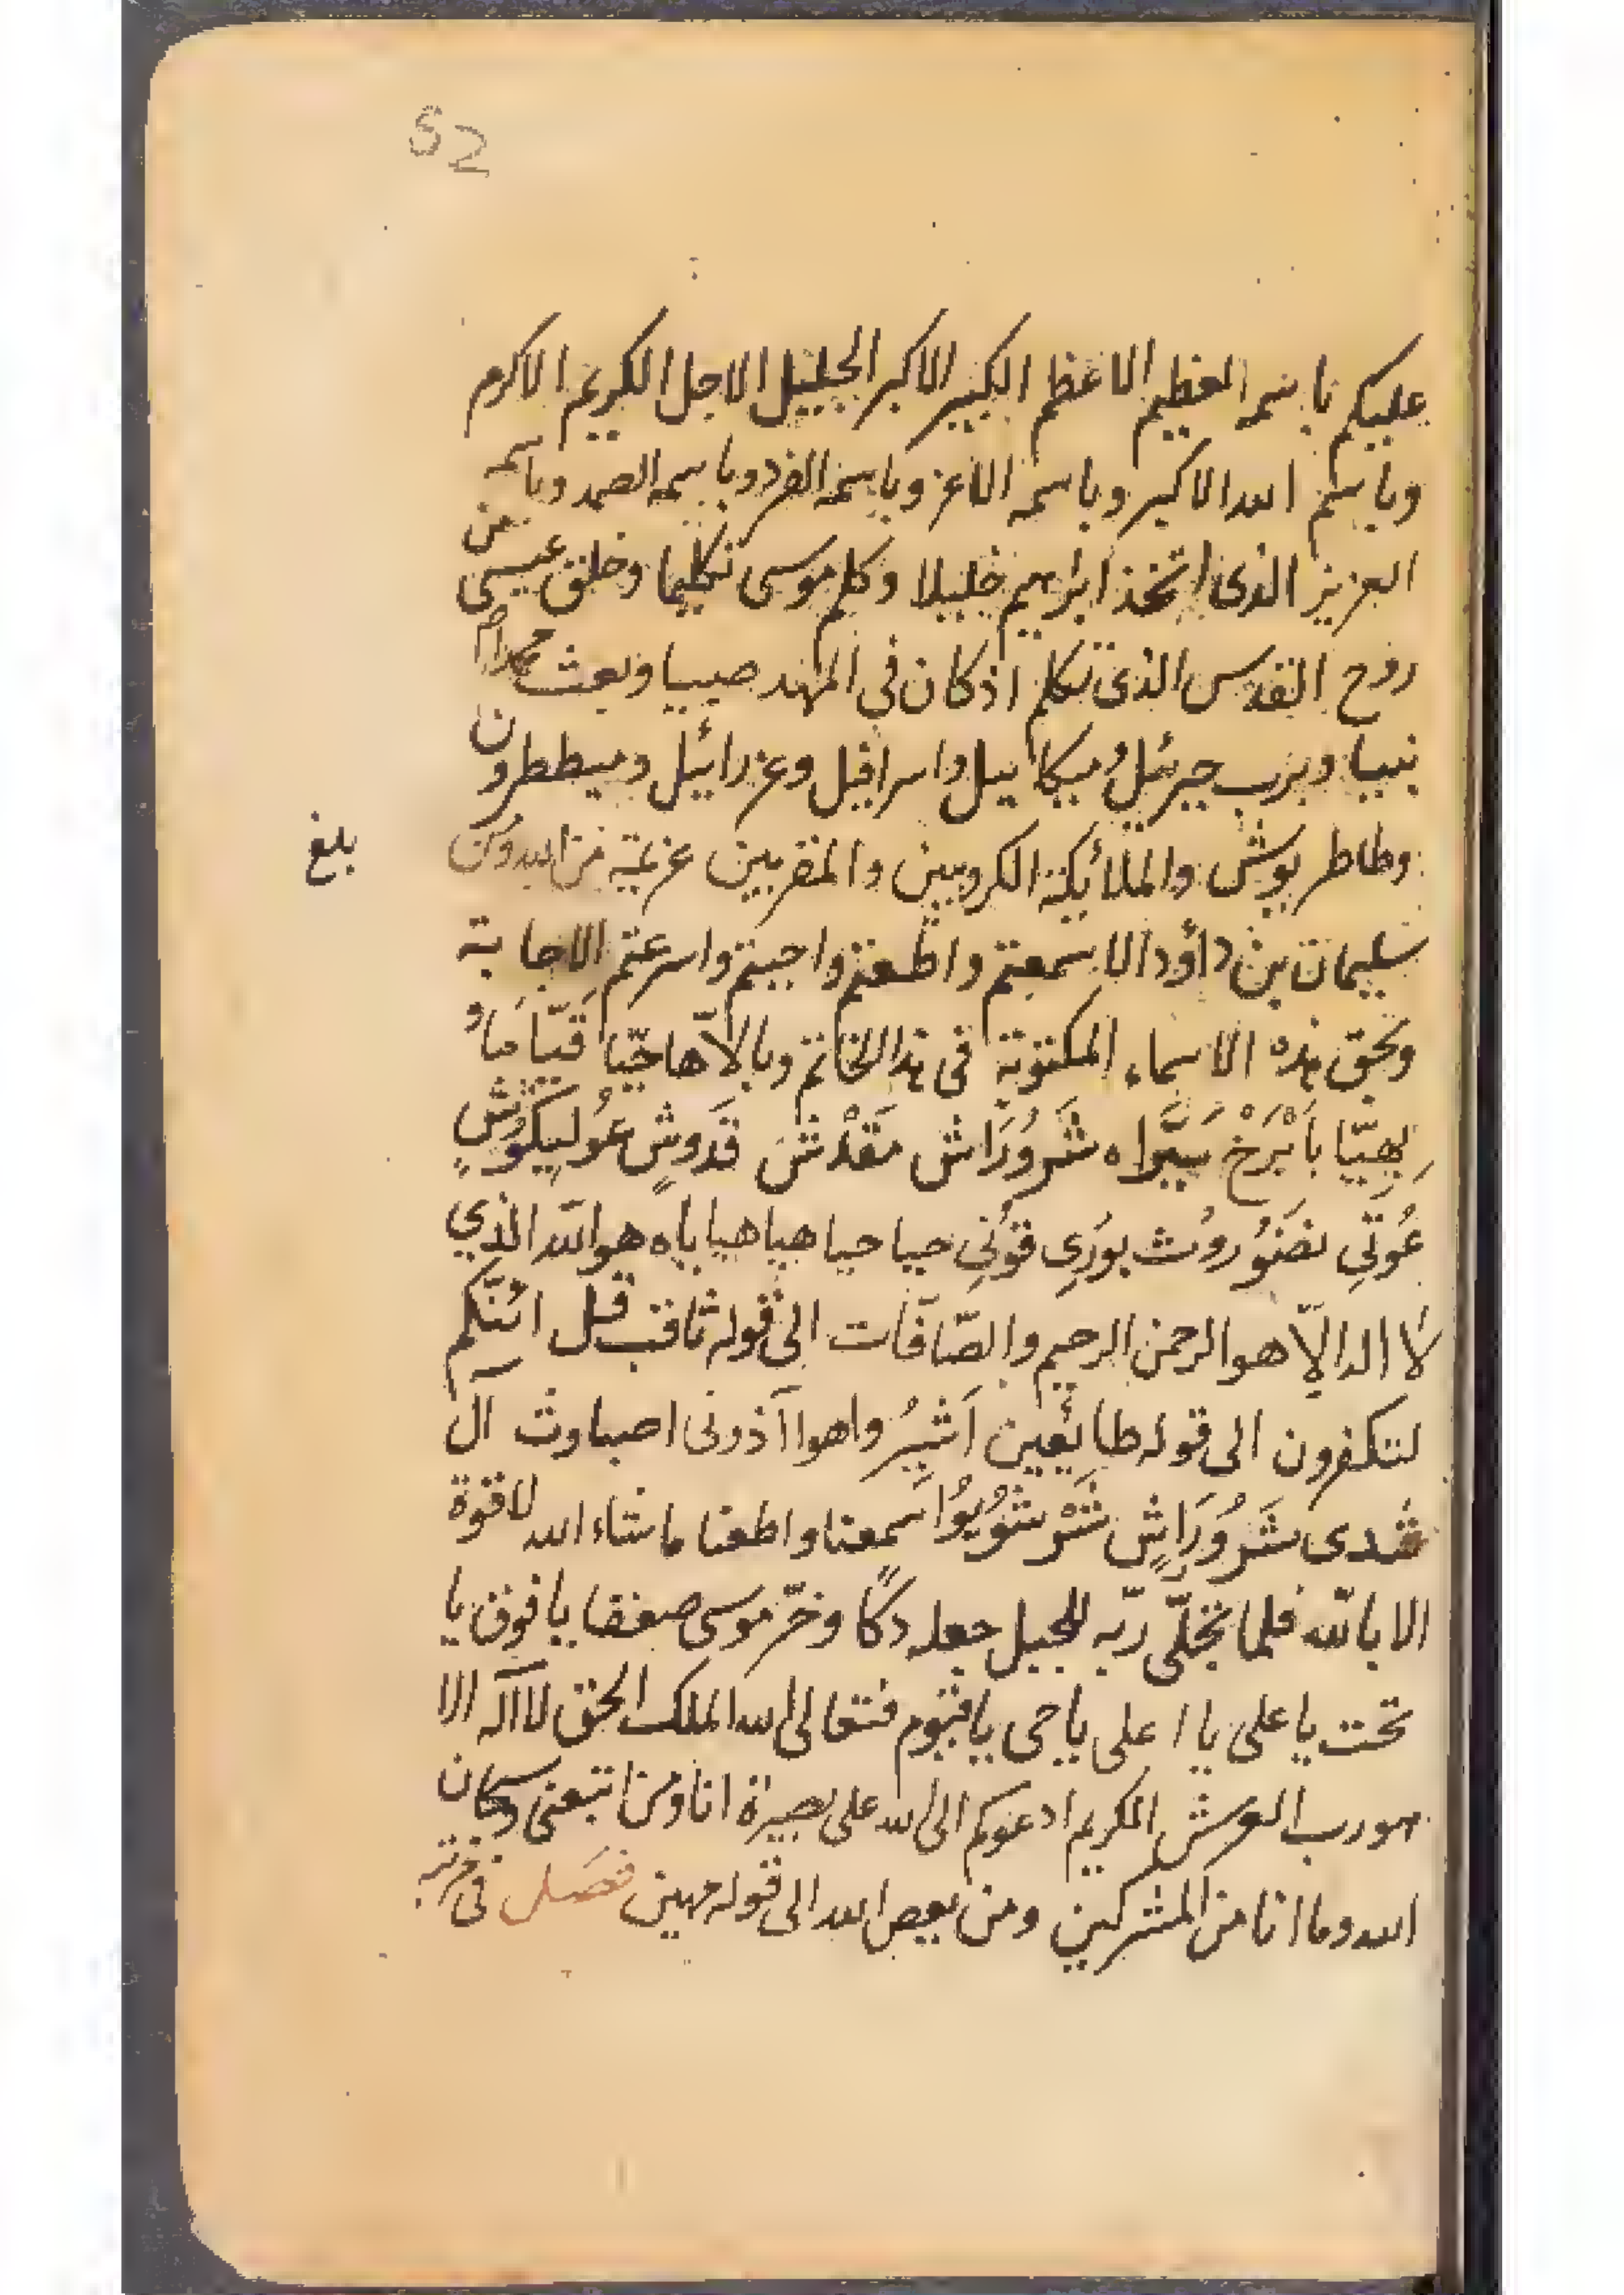 52
عليكم باسمه العظيم الاعظم الكبير الاكبر الجليل الاجل الكريم الاكرم
وباسم الله الاكبر وباسمه الاعز وباسمه الفرد وباسمه الصمد وباسمه
العزيز الذى اتخذ ابراهيم خليلا وكلم موسى تكليما وخلق عيسى من
روح القدس الذى تكلم اذ كان فى المهد صبيا وبعث محمدا
نبيا وبرب جبرئيل وميكاييل واسرافيل وعزرائيل وميططرون
وطاطريوش والملائكة الكروبين والمقربين عزيمة من الله ومن
بلغ
سليمان بن داؤد الا سمعتم واطعتم واجبتم واسرعتم الاجابة
وبحق هذه الاسماء المكتوبة فى هذا الخاتم وبالاها حيّا قيّاما
بهيّا بابرخ شروراش مقدش قدوش
عوتى بورى قونى حيا حيا هيا هيا ياه هو الله الذي
لا اله الا هو الرحمن الرحيم والصّافّات الى قوله ثاقب قل ائنّكم
لتكفرون الى قوله طائعين اشير واهوا آذونى اصباوث آل
شدى شروراش سمعنا واطعنا ما شاء الله لا قوة
الا بالله فلما تجلّى ربّه للجبل جعله دكّا وخرّ موسى صعقا يا فوق يا
تحت يا على يا اعلى يا حى يا قيّوم فتعالى الله الملك الحق لا اله الا
هو رب العرش الكريم ادعوكم الى الله على بصيرة انا ومن اتبعنى وسبحان
الله وما انا من المشركين ومن يعص الله الى قوله مهين فصل فى